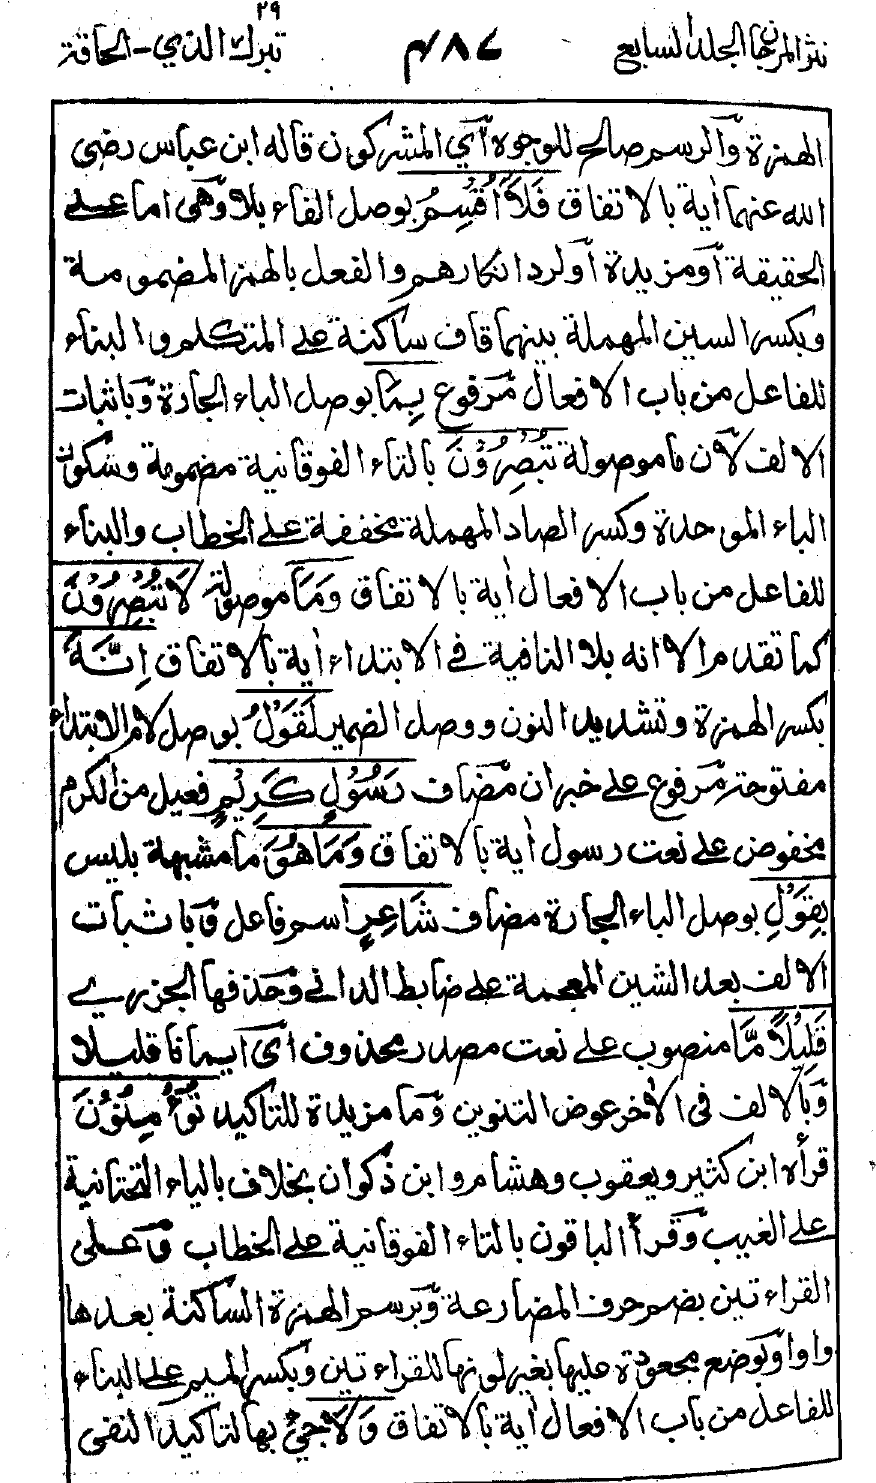 ٢٩
نثر المرجان الجلد السابع
٤٨٧
تبرك الذي - الحاقة
الهمزة والرسم صالح للوجوه أي المشركون قاله ابن عباس رضى
الله عنهما أية بالاتفاق فَلَا أُقْسِمُ بوصل الفاء بلا وهى اما على
الحقيقة أو مزيدة أو لرد انكارهم والفعل بالهمز المضمومة
وبكسر السين المهملة بينهما قاف ساكنة على المتكلم والبناء
للفاعل من باب الافعال مرفوع بِمَا بوصل الباء الجارة وباثبات
الالف لان ما موصولة تُبْصِرُوْنَ بالتاء الفوقانية مضمومة وسكون
الباء الموحدة وكسر الصاد المهملة مخففة على الخطاب والبناء
للفاعل من باب الافعال أية بالاتفاق وَمَا موصولة لَا تُبْصِرُوْنَ
كما تقدم الا انه بلا النافية فى الابتداء أية بالاتفاق اِنَّهٗ
بكسر الهمزة وتشديد النون ووصل الضمير لَقَوْلُ بوصل لام الابتداء
مفتوحة مرفوع على خبر ان مضاف رَسُوْلٍ كَرِيْمٍ فعيل من الكرم
مخفوض على نعت رسول أية بالاتفاق وَمَا هُوَ ما مشبهة بليس
بِقَوْلِ بوصل الباء الجارة مضاف شَاعِرٍ اسم فاعل وباثبات
الالف بعد الشين المعجمة على ضابط الدانى وحذفها الجزري
قَلِيْلًا مَّا منصوب على نعت مصدر محذوف اى ايمانا قليلا
وبالالف فى الأخر عوض التنوين وما مزيدة للتاكيد تُؤْمِنُوْنَ
قرأه ابن كثير ويعقوب وهشام وابن ذكوان بخلاف بالياء التحتانية
على الغيب وقرأ الباقون بالتاء الفوقانية على الخطاب وعلى
القراءتين بضم حرف المضارعة وبرسم الهمزة الساكنة بعدها
واوا وبوضع مجعودة عليها بغير لونها للقراءتين وبكسر الميم على البناء
للفاعل من باب الافعال أية بالاتفاق وَلَا جيْ بها لتاكيد النفى